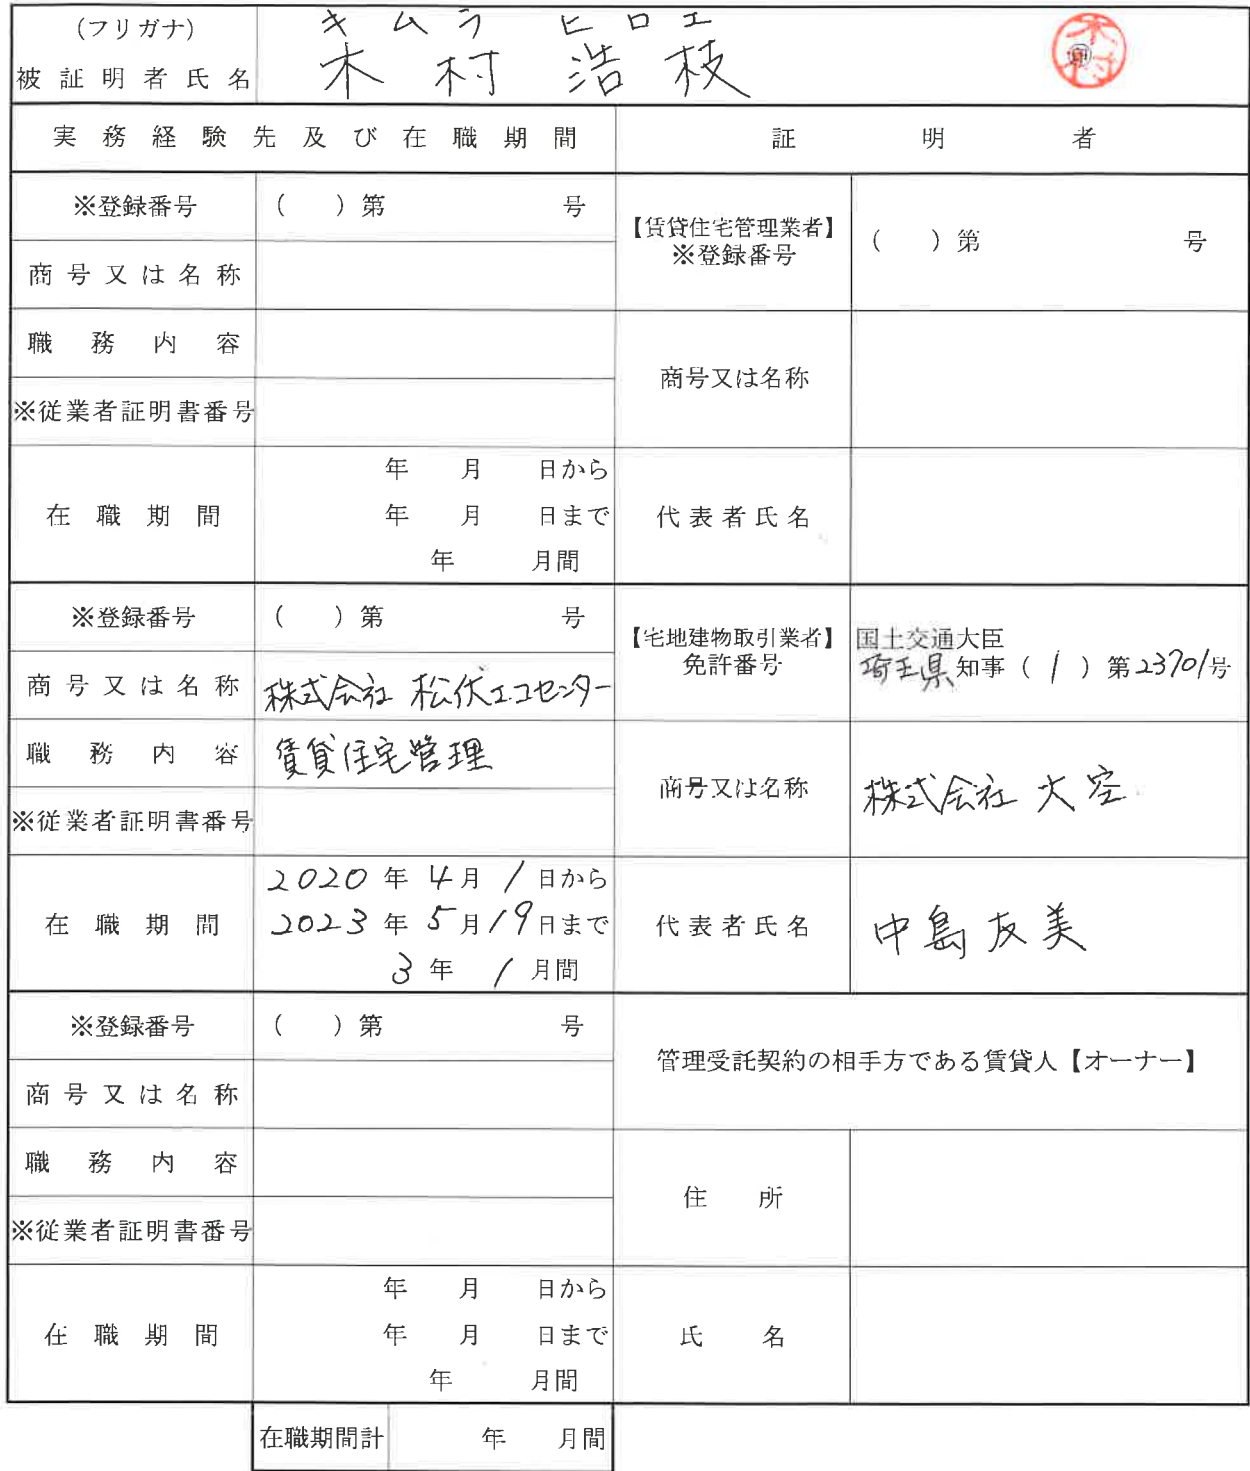 (フリガナ) キムラ ヒロエ
被証明者氏名 木村 浩枝 木村 ㊞
実務経験先及び在職期間 証明者
※登録番号 ( )第 号
【賃貸住宅管理業者】
※登録番号 ( )第 号
商号又は名称
職務内容
商号又は名称
※従業者証明書番号
在職期間
年 月 日から
年 月 日まで
年 月間
代表者氏名
※登録番号 ( )第 号
【宅地建物取引業者】
免許番号
国土交通大臣
埼玉県知事(1)第23701号
商号又は名称 株式会社 松伏エコセンター
職務内容 賃貸住宅管理
商号又は名称 株式会社 大空
※従業者証明書番号
在職期間
2020年4月1日から
2023年5月19日まで
3年1月間
代表者氏名 中島友美
※登録番号 ( )第 号
管理受託契約の相手方である賃貸人【オーナー】
商号又は名称
職務内容
住所
※従業者証明書番号
在職期間
年 月 日から
年 月 日まで
年 月間
氏名
在職期間計 年 月間